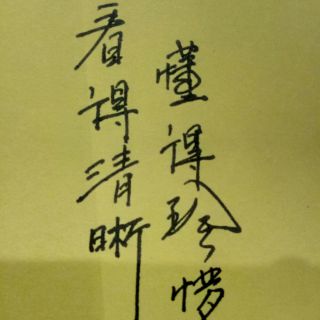 看得清晰
懂得珍惜